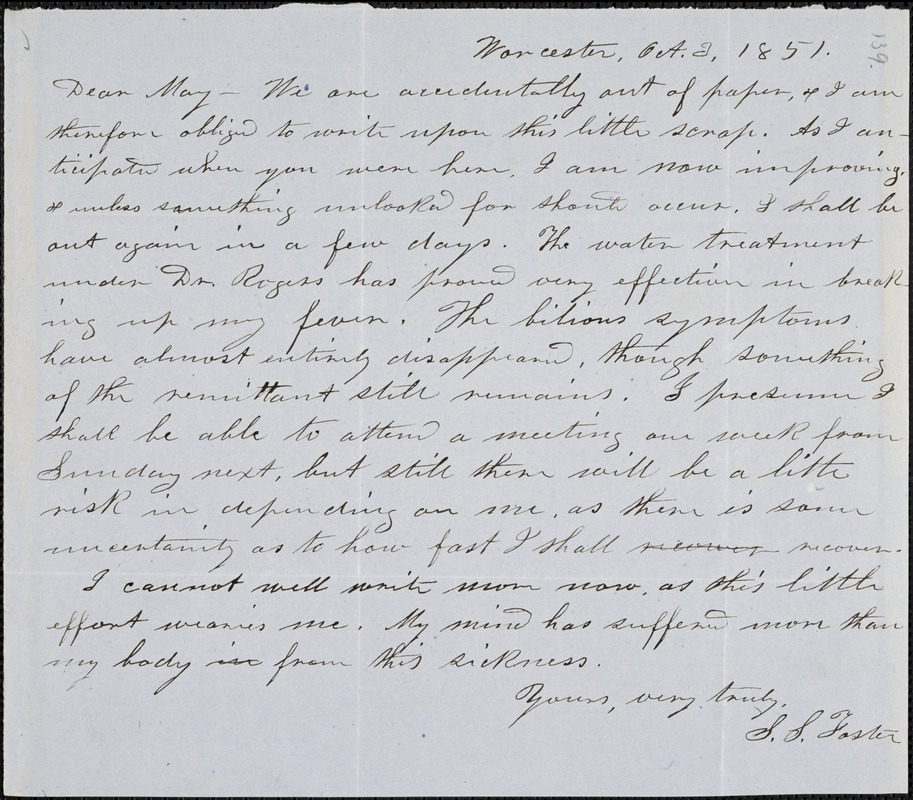 139.
Worcester, Oct. 3, 1851.
Dear May — We are accidentally out of paper, & I am
therefore obliged to write upon this little scrap. As I an-
ticipated when you were here, I am now improving,
& unless something unlooked for should occur, I shall be
out again in a few days. The water treatment
under Dr. Rogers has proved very effective in break-
ing up my fever. The bilious symptoms
have almost entirely disappeared, though something
of the remittant still remains. I presume I
shall be able to attend a meeting one week from
Sunday next, but still there will be a little
risk in depending on me, as there is some
uncertainty as to how fast I shall recover recover.
I cannot well write more now, as this little
effort wearies me. My mind has suffered more than
my body in from this sickness.
Yours, very truly,
S. S. Foster